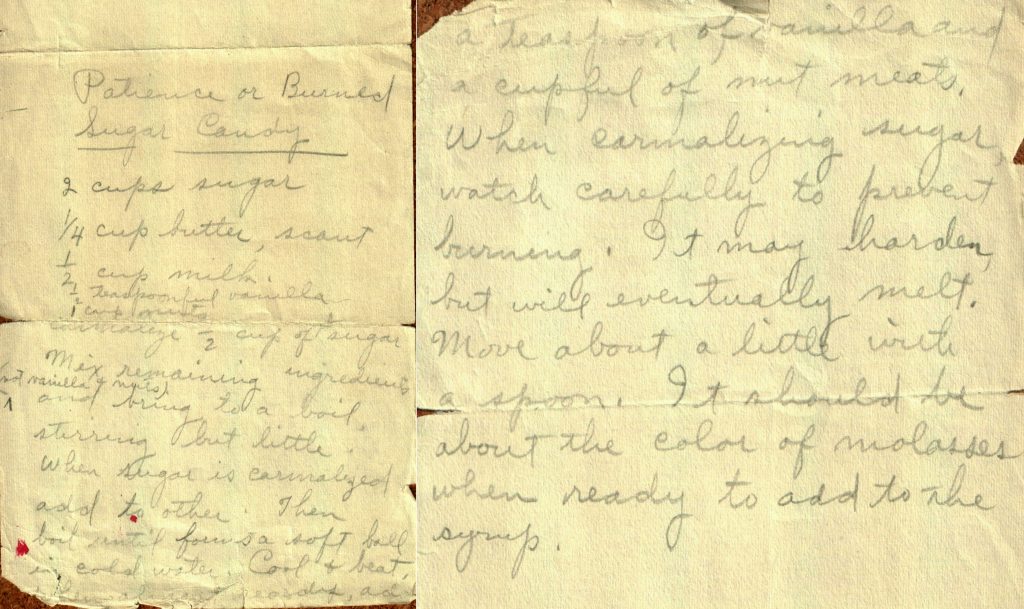 Patience or Burned
Sugar Candy
2 cups sugar
1/4 cup butter, scant
1/2 cup milk.
1/2 teaspoonful vanilla
1 cup nuts
carmalize 1/2 cup of sugar
Mix remaining ingredients
(not vanilla & nuts)
and bring to a boil,
stirring but little.
When sugar is carmalized
add to other. Then
boil until forms a soft ball
in cold water. Cool & beat,
ready, ad
a teaspoon of vanilla and
a cupful of nut meats.
When carmalizing sugar,
watch carefully to prevent
burning. It may harden,
but will eventually melt.
Move about a little with
a spoon. It should be
about the color of molasses
when ready to add to the
syrup.